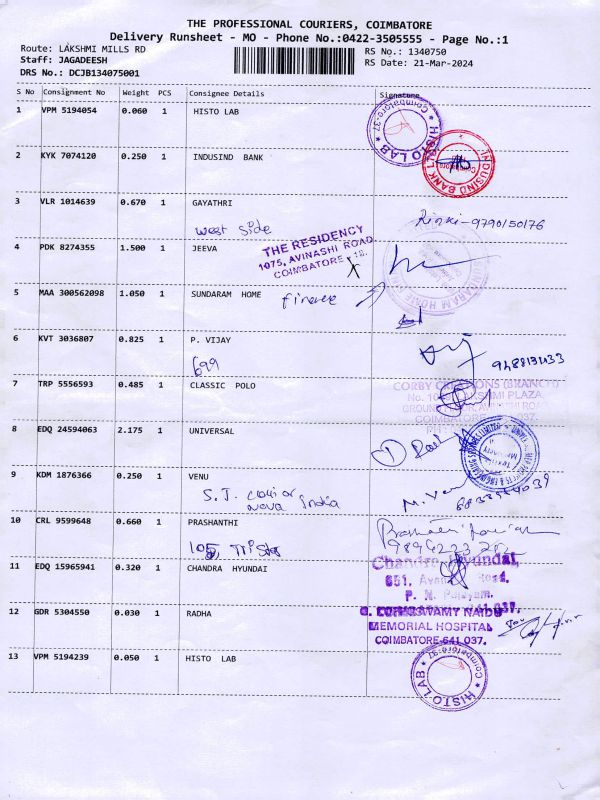 THE PROFESSIONAL COURIERS, COIMBATORE
Delivery Runsheet - MO - Phone No.:0422-3505555 - Page No.:1
Route: LAKSHMI MILLS RD
RS No.: 1340750
Staff: JAGADEESH
RS Date: 21-Mar-2024
DRS No.: DCJB134075001
S No Consignment No Weight PCS Consignee Details Signature
1 VPM 5194054 0.060 1 HISTO LAB
HISTO LAB * Coimbatore-37 *
2 KYK 7074120 0.250 1 INDUSIND BANK
INDUSIND BANK LTD
3 VLR 1014639 0.670 1 GAYATHRI
west side
9790150176
4 PDK 8274355 1.500 1 JEEVA
THE RESIDENCY
1075, AVINASHI ROAD,
COIMBATORE - 18.
5 MAA 300562098 1.050 1 SUNDARAM HOME finance
SUNDARAM HOME
6 KVT 3036807 0.825 1 P. VIJAY
699
7 TRP 5556593 0.485 1 CLASSIC POLO
CORBY CREATIONS (BRANCH)
8 EDQ 24594063 2.175 1 UNIVERSAL
9 KDM 1876366 0.250 1 VENU
Nova India
M. Ven
10 CRL 9599648 0.660 1 PRASHANTHI
105, Tristar
11 EDQ 15965941 0.320 1 CHANDRA HYUNDAI
Chandra Hyundai,
651, Avanashi Road,
P. N. Palayam,
12 GDR 5304550 0.030 1 RADHA
G. KUPPUSWAMY NAIDU
MEMORIAL HOSPITAL
COIMBATORE-641 037.
13 VPM 5194239 0.050 1 HISTO LAB
HISTO LAB * Coimbatore-37 *